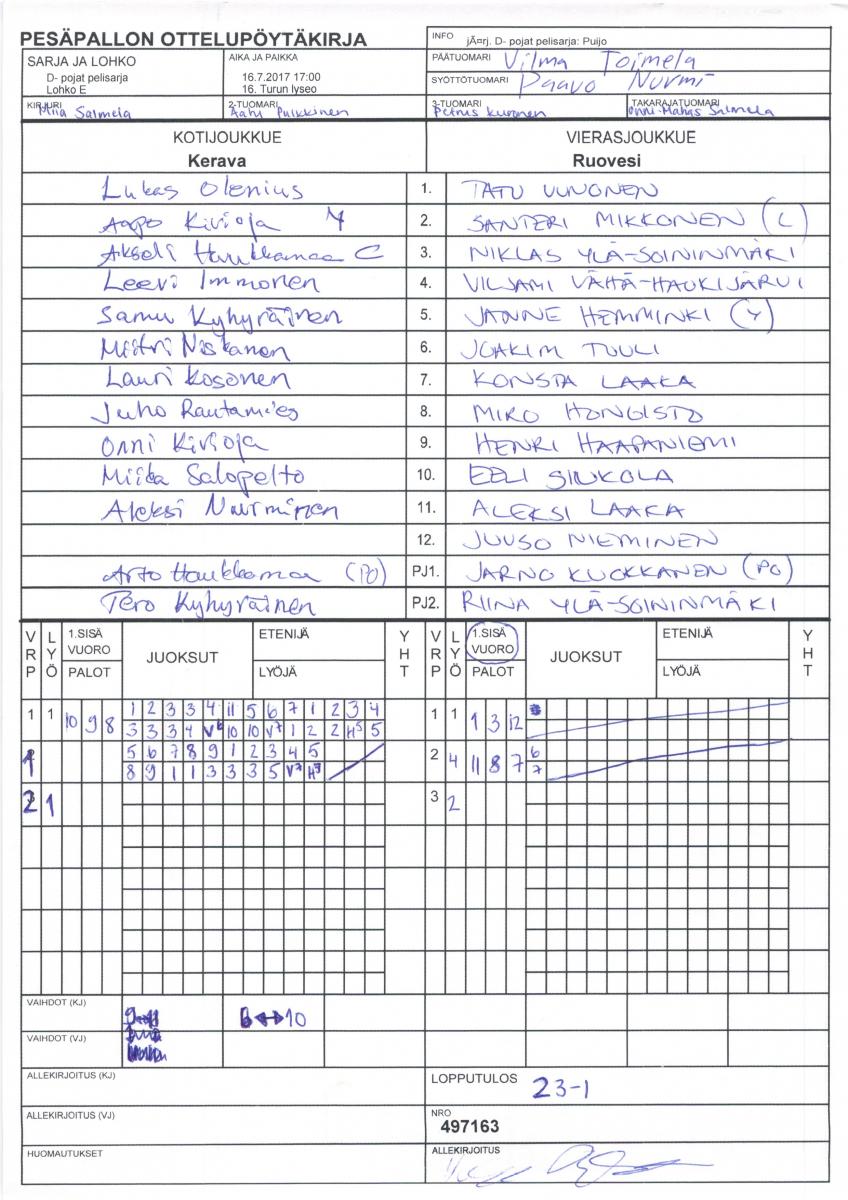 PESÄPALLON OTTELUPÖYTÄKIRJA
INFO jÃ¤rj. D- pojat pelisarja: Puijo
SARJA JA LOHKO
D- pojat pelisarja
Lohko E
AIKA JA PAIKKA
16.7.2017 17:00
16. Turun lyseo
PÄÄTUOMARI Vilma Toimela
SYÖTTÖTUOMARI Paavo Nurmi
KIRJURI Miia Salmela
2-TUOMARI Aatu Pulkkinen
3-TUOMARI Petrus Kuronen
TAKARAJATUOMARI Onni-Matias Salmela
KOTIJOUKKUE VIERASJOUKKUE
Kerava Ruovesi
Lukas Olenius 1. TATU UUNONEN
Aapo Kivioja 2. SANTERI MIKKONEN (L)
Akseli Haukkamaa C 3. NIKLAS YLÄ-SOININMÄKI
Leevi Immonen 4. VILJAMI VÄHÄ-HAUKIJÄRVI
Samu Kyhyräinen 5. JANNE HEMMINKI (Y)
Miitri Niskanen 6. JOAKIM TUULI
Lauri Kosonen 7. KONSTA LAAKA
Juho Rautamies 8. MIRO HONGISTO
Onni Kivioja 9. HENRI HAAPANIEMI
Miika Salopelto 10. EELI SIUKOLA
Aleksi Nurminen 11. ALEKSI LAAKA
12. JUUSO NIEMINEN
Arto Haukkamaa (PJ) PJ1. JARNO KUOKKANEN (PJ)
Tero Kyhyräinen PJ2. RIINA YLÄ-SOININMÄKI
VRP LYÖ 1.SISÄ VUORO PALOT JUOKSUT ETENIJÄ LYÖJÄ YHT VRP LYÖ 1.SISÄ VUORO PALOT JUOKSUT ETENIJÄ LYÖJÄ YHT
1 2 3 3 4 11 5 6 7 1 2 3 4
1 1 10 9 8 1 1 1 3 12
3 3 3 4 V6 10 10 V7 1 2 2 H5 5
5 6 7 8 9 1 2 3 4 5 6
1 2 4 11 8 7
8 9 1 1 3 3 3 5 V7 H3 7
2 1 3 2
VAIHDOT (KJ) 6↔10
VAIHDOT (VJ)
ALLEKIRJOITUS (KJ)
LOPPUTULOS 23-1
ALLEKIRJOITUS (VJ)
NRO
497163
HUOMAUTUKSET
ALLEKIRJOITUS